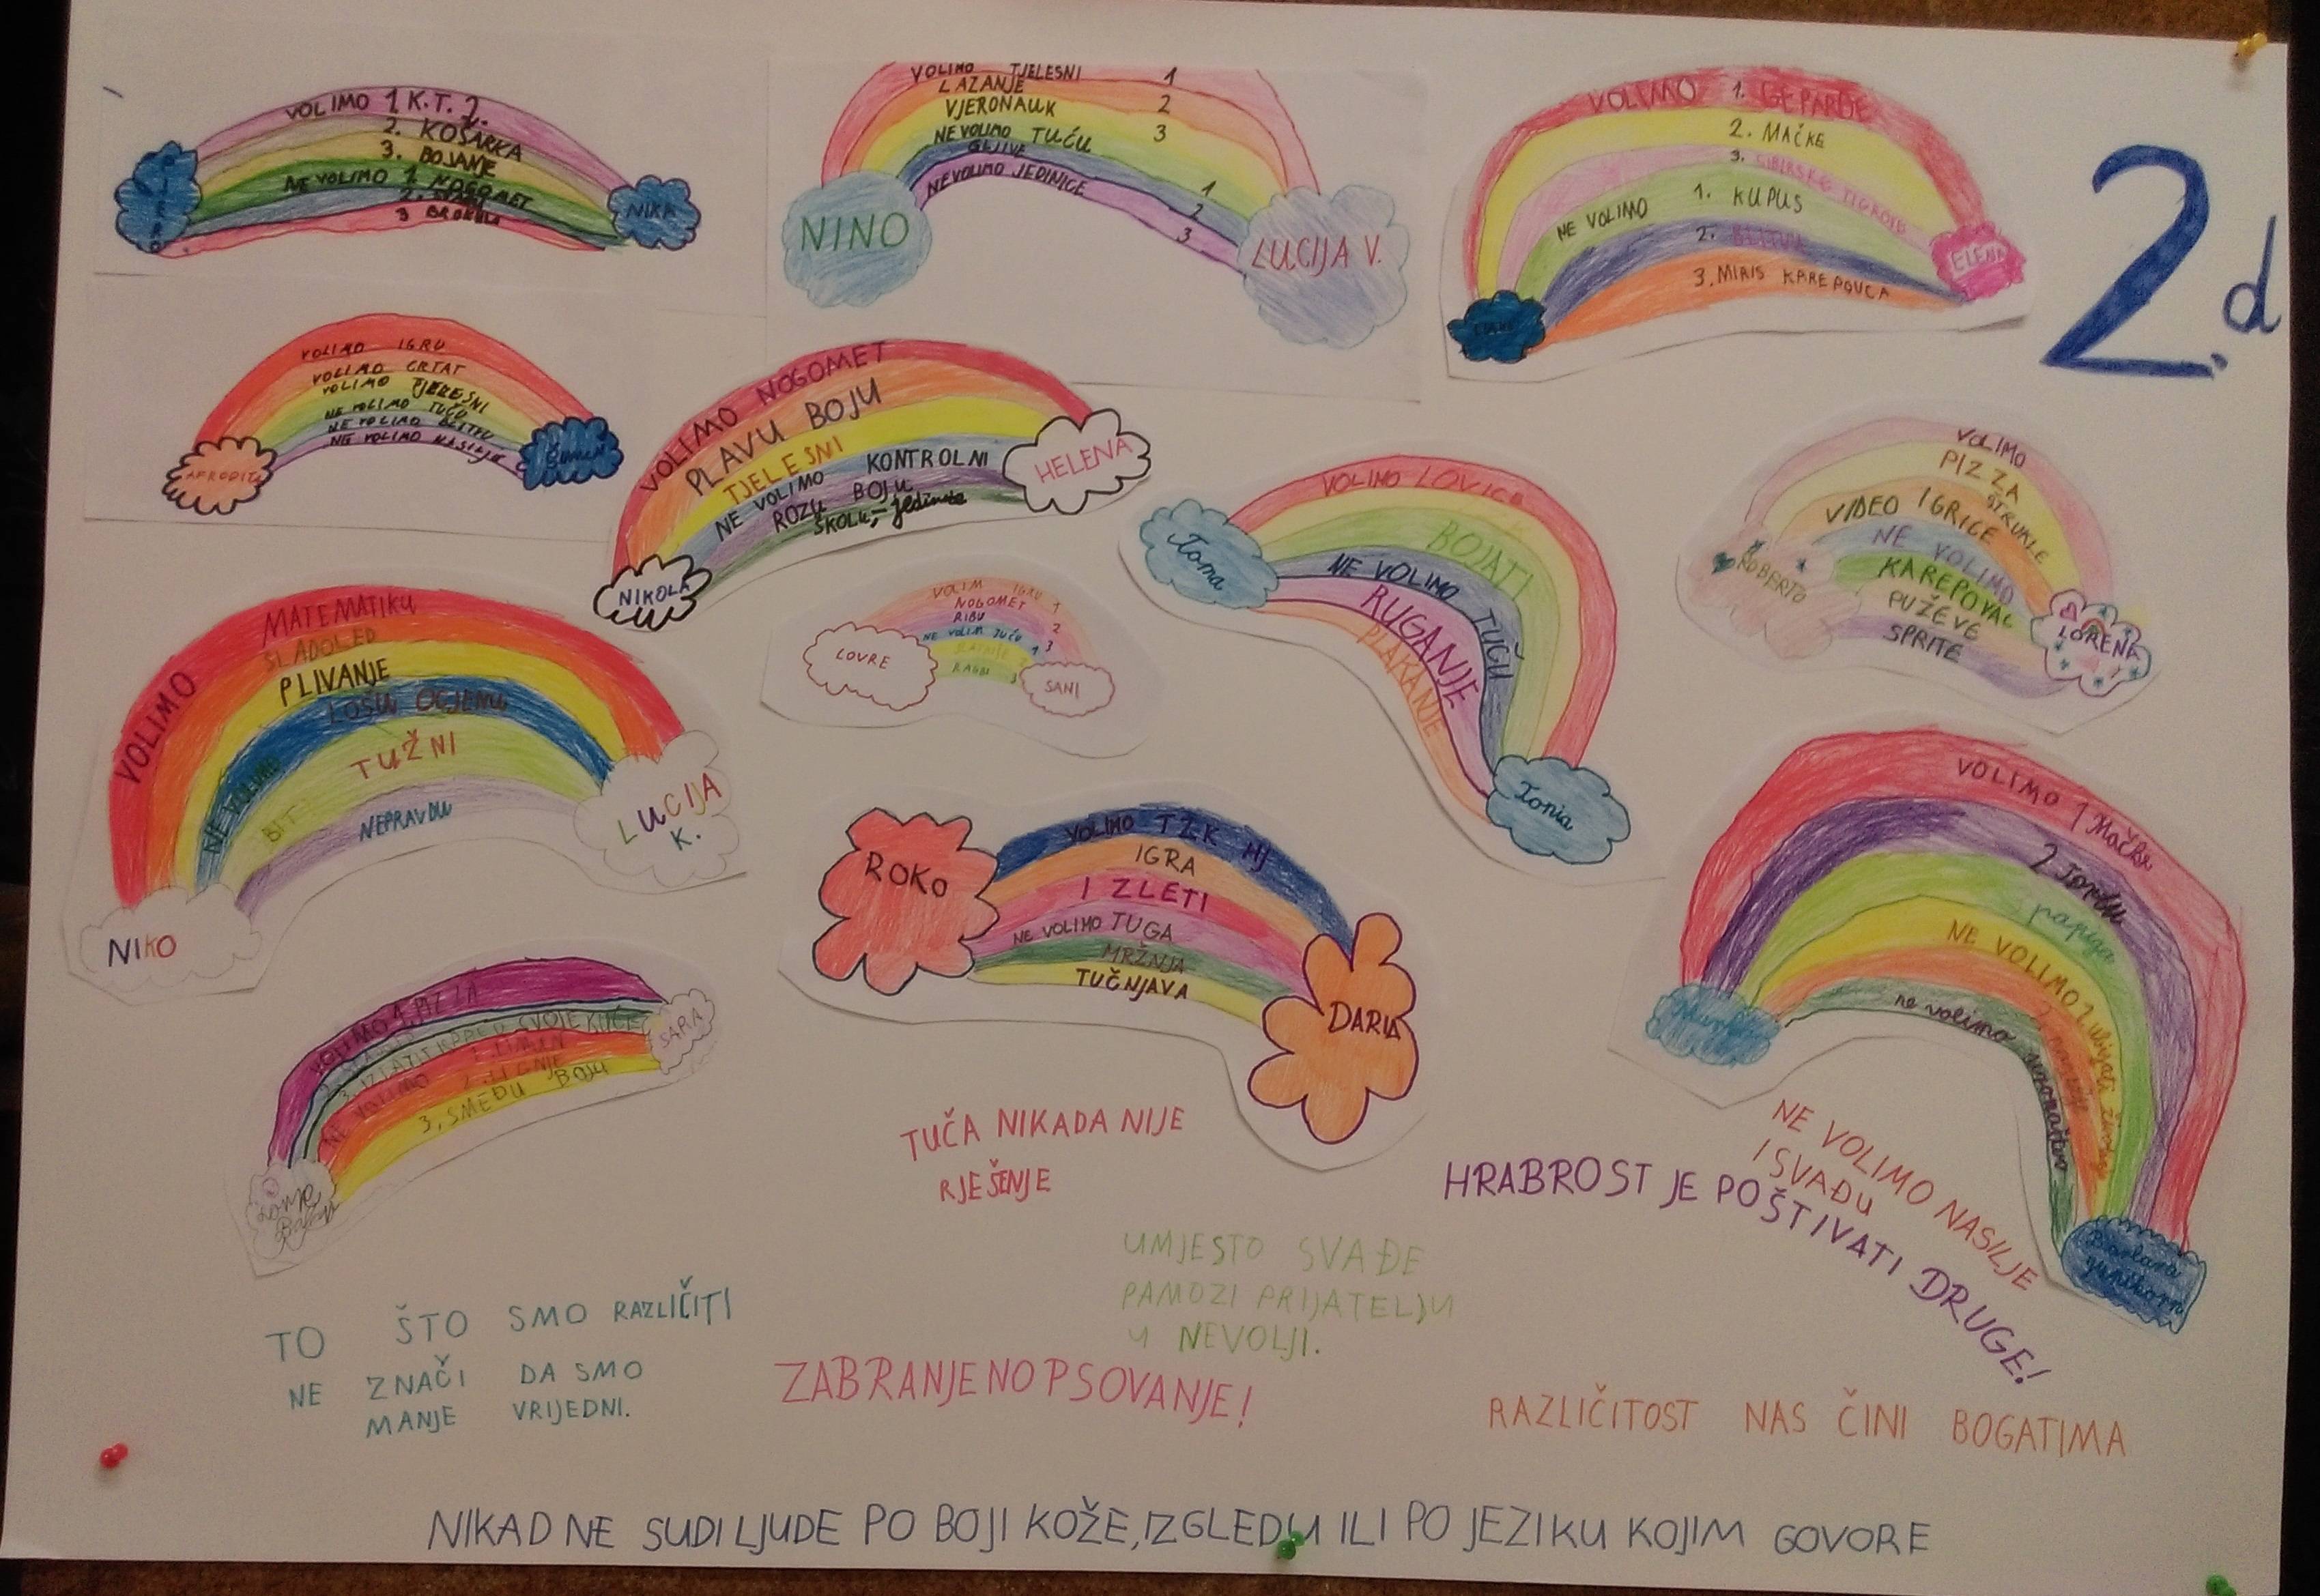 VOLIMO 1 K.T. 2.
2. KOŠARKA
3. BOJANJE
NE VOLIMO 1 NOGOMET
3 BROKULA
NIKA
VOLIMO TJELESNI 1
LAZANJE 2
VJERONAUK 3
NE VOLIMO TUČU 1
GLJIVE 2
NE VOLIMO JEDINICE 3
NINO
LUCIJA V.
VOLIMO 1. GEPARDE
2. MAČKE
3. SIBIRSKE TIGROVE
NE VOLIMO 1. KUPUS
2. BLITVU
3. MIRIS KARE POVCA
ELENA
2.d
VOLIMO IGRU
VOLIMO CRTAT
VOLIMO TJELESNI
NE VOLIMO TUČU
NE VOLIMO BLITVU
NE VOLIMO NASILJE
AFRODITA
VOLIMO NOGOMET
PLAVU BOJU
TJELESNI
NE VOLIMO KONTROLNI
ROZU BOJU
ŠKOLU, jedinice
NIKOLA
HELENA
VOLIMO LOVICE
BOJATI
NE VOLIMO TUČU
RUGANJE
PLAKANJE
Toma
Tonia
VOLIMO
PIZZA
ŠTRUKLE
VIDEO IGRICE
NE VOLIMO
KAREPOVAC
PUŽEVE
SPRITE
ROBERTO
LORENA
VOLIMO MATEMATIKU
SLADOLED
PLIVANJE
NE VOLIMO LOŠU OCJENU
BIT TUŽNI
NEPRAVDU
NIKO
LUCIJA K.
VOLIM IGRU 1
NOGOMET 2
RIBU 3
NE VOLIM TUČU 1
RAGBI 3
LOVRE
SANI
VOLIMO TZK HJ
IGRA
IZLETI
NE VOLIMO TUGA
MRŽNJA
TUČNJAVA
ROKO
DARIA
VOLIMO 1 Mačke
2 Tortu
papiga
NE VOLIMO 1 ubijati životinje
ne volimo
VOLIMO 1. PIZZA
SVOJE KUĆE
NE VOLIMO 1. LIMUN
2. LIGNJE
3. SMEĐU BOJU
SARA
TUČA NIKADA NIJE
RJEŠENJE
NE VOLIMO NASILJE
I SVAĐU
HRABROST JE POŠTIVATI DRUGE!
UMJESTO SVAĐE
PAMOZI PRIJATELJU
U NEVOLJI.
TO ŠTO SMO RAZLIČITI
NE ZNAČI DA SMO
MANJE VRIJEDNI.
ZABRANJENO PSOVANJE!
RAZLIČITOST NAS ČINI BOGATIMA
NIKAD NE SUDI LJUDE PO BOJI KOŽE, IZGLEDU ILI PO JEZIKU KOJIM GOVORE